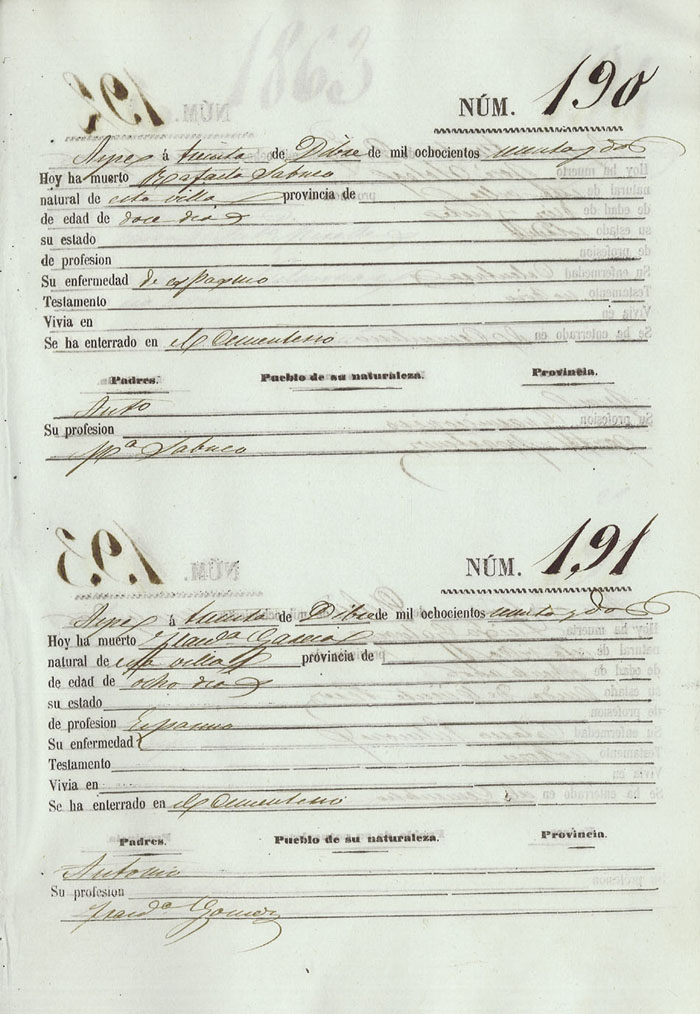 1863
NÚM. 190
Aspe á treinta de Dibre de mil ochocientos sesenta y dos
Hoy ha muerto Rafaela Sabuco
natural de esta villa provincia de
de edad de doce dias
su estado
de profesion
Su enfermedad de espasmo
Testamento
Vivia en
Se ha enterrado en el Cementerio
Padres. Pueblo de su naturaleza. Provincia.
Anto
Su profesion
Ma Sabuco
NÚM. 191
Aspe á treinta de Dibre de mil ochocientos sesenta y dos
Hoy ha muerto Franca
natural de esta villa provincia de
de edad de ocho dias
su estado
de profesion Espasmo
Su enfermedad
Testamento
Vivia en
Se ha enterrado en el Cementerio
Padres. Pueblo de su naturaleza. Provincia.
Antonio
Su profesion
Franca Gomez